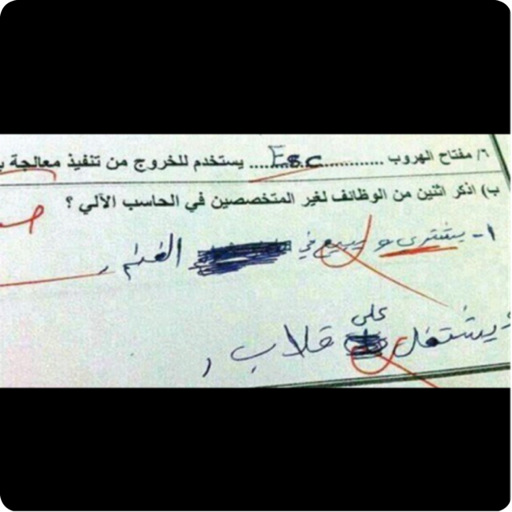 ٦/ مفتاح الهروب ...............Esc............... يستخدم للخروج من تنفيذ معالجة
ب) اذكر اثنين من الوظائف لغير المتخصصين في الحاسب الآلي ؟
١- يشتري و يبيع في الغنم
يشتغل على قلاب